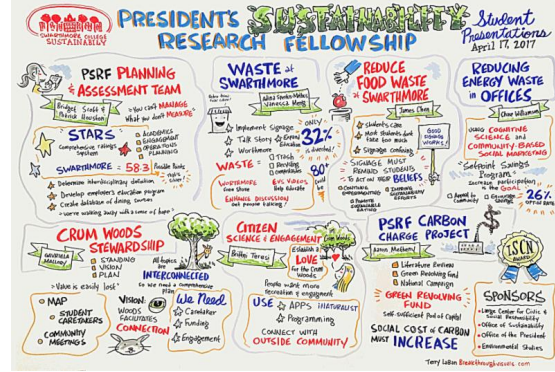 SWARTHMORE COLLEGE
SUSTAINABILITY
PRESIDENT'S SUSTAINABILITY
RESEARCH FELLOWSHIP
Student
Presentations
April 17, 2017
PSRF PLANNING
& ASSESSMENT TEAM
Bridget Scott &
Patrick Houston
"You can't MANAGE
What you don't MEASURE"
STARS
Comprehensive ratings
System
ACADEMICS
ENGAGEMENT
OPERATIONS
PLANNING
SWARTHMORE = 58.3 Possible Points
Determine interdisciplinary database
Develop employee education program
Create database of dining sources
"We're working away with a sense of hope"
WASTE at
SWARTHMORE
Vanessa Meng
Implement Signage
Talk Story
Worthmore
ONLY
32%
is diverted!
WASTE =
Trash
Recycling
Compostables
80%
WORTHMORE
EVS VIDEOS
Help Educate
ENHANCE DISCUSSION
Get people talking
REDUCE
FOOD WASTE
at SWARTHMORE
James Chen
Students care
Most students don't
take too much
Signage confusing
GOOD
SIGNAGE
WORKS!
SIGNAGE MUST
REMIND STUDENTS
TO ACT ON THEIR BELIEFS
REDUCING
ENERGY WASTE
in OFFICES
USING COGNITIVE
SCIENCE and
COMMUNITY-BASED
SOCIAL MARKETING
Setpoint Savings
Program =
Increase participation
is the GOAL
Appeal to
Community
26%
CRUM WOODS
STEWARDSHIP
STANDING
VISION
PLAN
"Value is easily lost"
All topics
are
INTERCONNECTED
So we need a comprehensive
plan
MAP
STUDENT
CARETAKERS
COMMUNITY
MEETINGS
VISION:
WOODS
FACILITATES
CONNECTION
We Need
Caretaker
Funding
Engagement
CITIZEN
SCIENCE & ENGAGEMENT
Establish a
LOVE
for the Crum
Woods
Crum Woods
People want more
recreation & engagement
USE
APPS iNATURALIST
Programming
CONNECT WITH
OUTSIDE COMMUNITY
PSRF CARBON
CHARGE PROJECT
Literature Review
Green Revolving Fund
National Campaign
GREEN REVOLVING
FUND
Self-sufficient Pool of Capital
SOCIAL COST of CARBON
MUST INCREASE
ISCN
AWARD
SPONSORS
Lang Center for Civic &
Social Responsibility
Office of Sustainability
Office of the President
Environmental Studies
Terry LaBan Breakthroughvisuals.com